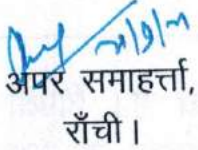 अपर समाहर्त्ता,
राँची।